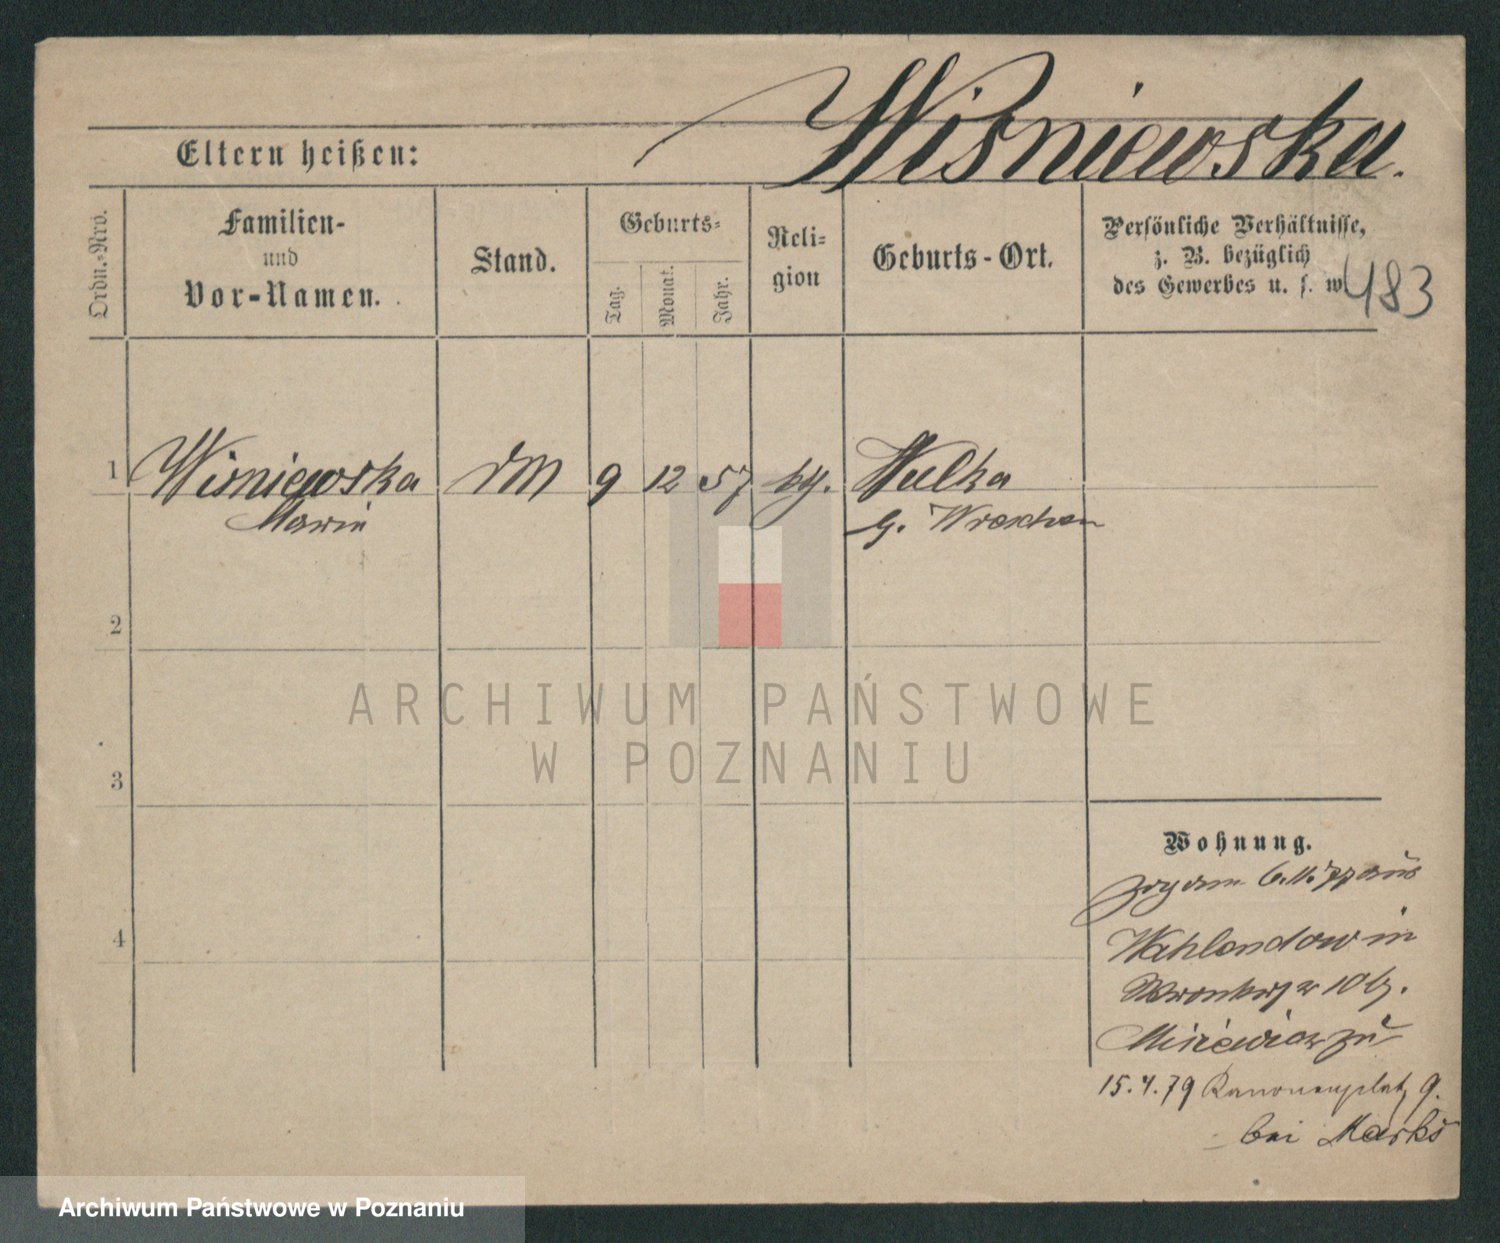 Wiśniewska.
Eltern heißen:
Ordn.-Nro.
Familien-
und
Vor-Namen.
Stand.
Geburts-
Tag.
Monat.
Jahr.
Reli-
gion
Geburts-Ort.
Persönliche Verhältnisse,
z. B. bezüglich
des Gewerbes u. s. w.
483
1 Wisniewska DM 9 12 57 kth. Wulka
Marie
b. Wreschen
2
3
4
ARCHIWUM PAŃSTWOWE
W POZNANIU
Wohnung.
zog am 6.11.77 aus
in
10 b.
zu
15.4.79 Kanonenplatz 9.
bei Marks
Archiwum Państwowe w Poznaniu